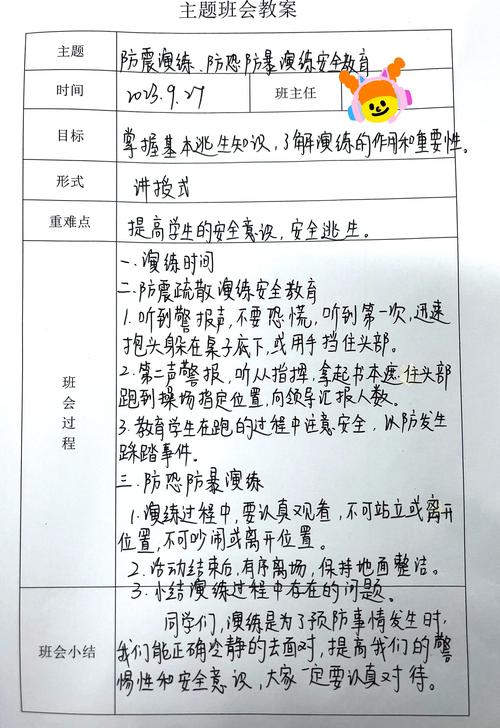 主题班会教案
主题 防震演练、防恐防暴演练安全教育
时间 2023.9.27 班主任
目标 掌握基本逃生知识，了解演练的作用和重要性。
形式 讲授式
重难点 提高学生的安全意识，安全逃生。
班会过程
一、演练时间
二、防震疏散演练安全教育
1.听到警报声，不要恐慌，听到第一次，迅速
抱头躲在桌子底下，或用手挡住头部。
2.第二声警报，听从指挥，拿起书本遮住头部
跑到操场指定位置，向领导汇报人数。
3.教育学生在跑的过程中注意安全，以防发生
踩踏事件。
三、防恐防暴演练
1.演练过程中，要认真观看，不可站立或离开
位置，不可吵闹或离开位置。
2.活动结束后，有序离场，保持地面整洁。
3.小结演练过程中存在的问题。
班会小结
同学们，演练是为了预防事情发生时，
我们能正确冷静的去面对，提高我们的警
惕性和安全意识，大家一定要认真对待。